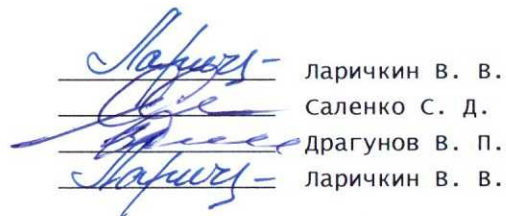 Ларичкин В. В.
Саленко С. Д.
Драгунов В. П.
Ларичкин В. В.